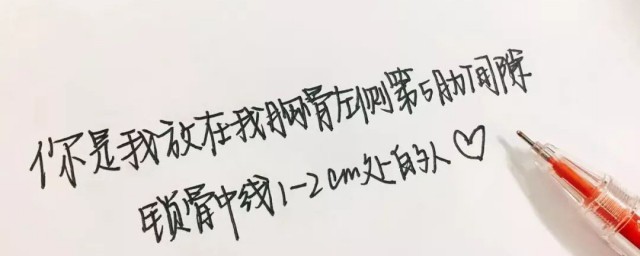 你是我放在我胸骨左侧第5肋间隙
锁骨中线1-2cm处的人♡